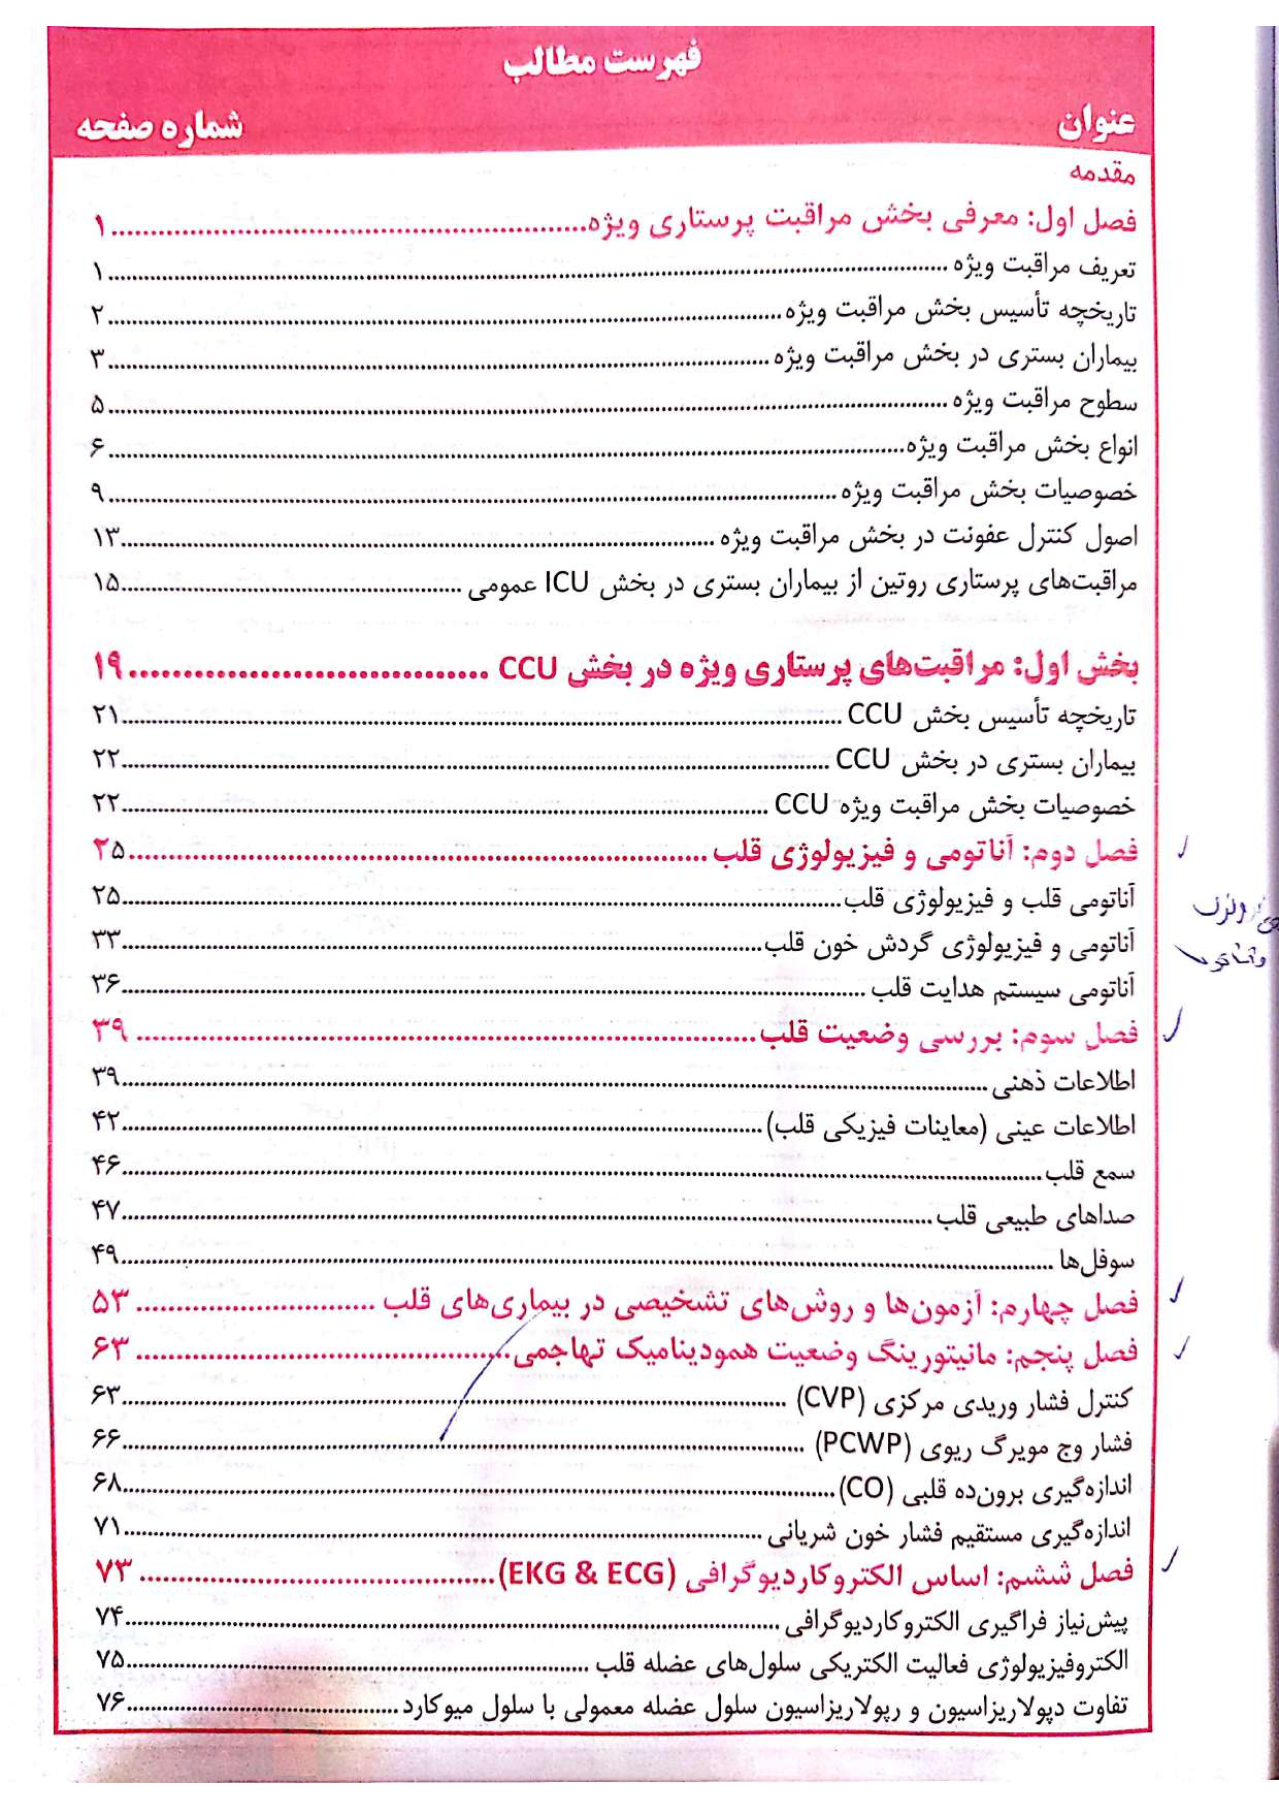 فهرست مطالب
عنوان شماره صفحه
مقدمه
فصل اول: معرفی بخش مراقبت پرستاری ویژه ........ ۱
تعریف مراقبت ویژه ........ ۱
تاریخچه تأسیس بخش مراقبت ویژه ........ ۲
بیماران بستری در بخش مراقبت ویژه ........ ۳
سطوح مراقبت ویژه ........ ۵
انواع بخش مراقبت ویژه ........ ۶
خصوصیات بخش مراقبت ویژه ........ ۹
اصول کنترل عفونت در بخش مراقبت ویژه ........ ۱۳
مراقبت‌های پرستاری روتین از بیماران بستری در بخش ICU عمومی ........ ۱۵
بخش اول: مراقبت‌های پرستاری ویژه در بخش CCU ........ ۱۹
تاریخچه تأسیس بخش CCU ........ ۲۱
بیماران بستری در بخش CCU ........ ۲۲
خصوصیات بخش مراقبت ویژه CCU ........ ۲۲
فصل دوم: آناتومی و فیزیولوژی قلب ........ ۲۵
آناتومی قلب و فیزیولوژی قلب ........ ۲۵
آناتومی و فیزیولوژی گردش خون قلب ........ ۳۳
آناتومی سیستم هدایت قلب ........ ۳۶
فصل سوم: بررسی وضعیت قلب ........ ۳۹
اطلاعات ذهنی ........ ۳۹
اطلاعات عینی (معاینات فیزیکی قلب) ........ ۴۲
سمع قلب ........ ۴۶
صداهای طبیعی قلب ........ ۴۷
سوفل‌ها ........ ۴۹
فصل چهارم: آزمون‌ها و روش‌های تشخیصی در بیماری‌های قلب ........ ۵۳
فصل پنجم: مانیتورینگ وضعیت همودینامیک تهاجمی ........ ۶۳
کنترل فشار وریدی مرکزی (CVP) ........ ۶۳
فشار وج مویرگ ریوی (PCWP) ........ ۶۶
اندازه‌گیری برون‌ده قلبی (CO) ........ ۶۸
اندازه‌گیری مستقیم فشار خون شریانی ........ ۷۱
فصل ششم: اساس الکتروکاردیوگرافی (EKG & ECG) ........ ۷۳
پیش‌نیاز فراگیری الکتروکاردیوگرافی ........ ۷۴
الکتروفیزیولوژی فعالیت الکتریکی سلول‌های عضله قلب ........ ۷۵
تفاوت دپولاریزاسیون و رپولاریزاسیون سلول عضله معمولی با سلول میوکارد ........ ۷۶